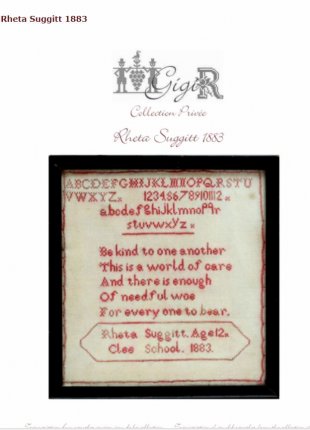 Rheta Suggitt 1883
Gigi R
Collection Privée
Rheta Suggitt 1883
ABCDEFGHIJKLMNOPQRSTU
VWXYZx 123456789101112x
abcdefghijklmnopqr
stuvwxyzx
Be kind to one another
This is a world of care
And there is enough
Of needful woe
For every one to bear.
Rheta Suggitt. Age12x
Clee School. 1883.